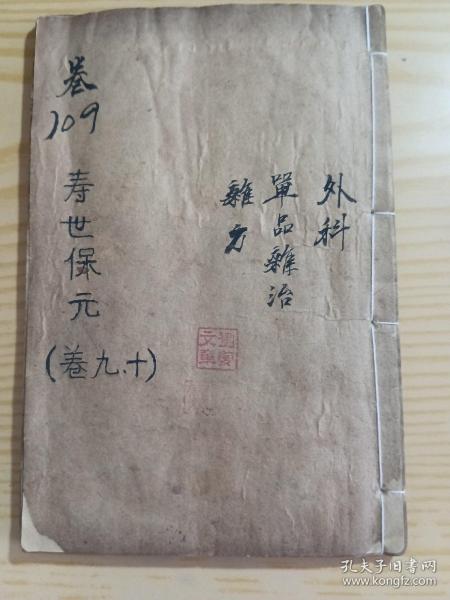 外科
單品雜治
雜方
卷
109
寿世保元
(卷九、十)
孔夫子旧书网
www.kongfz.com